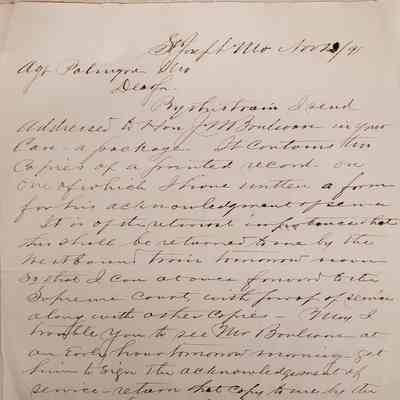 St Joseph Mo Nov 12/91
Agt Palmyra Mo
Dear Sir
By this train I send
addressed to Hon J M Boulware in your
Care - a package It contains two
Copies of a printed record - on
one of which I have written a form
for his acknowledgement of service
It is of the utmost importance that
this shall be returned to me by the
West bound train tomorrow noon
So that I can at once forward to the
Supreme Court, with proof of service
along with other Copies - May I
trouble You to see Mr Boulware at
an Early hour tomorrow morning - get
him to sign the acknowledgement of
service - return that copy to me by the